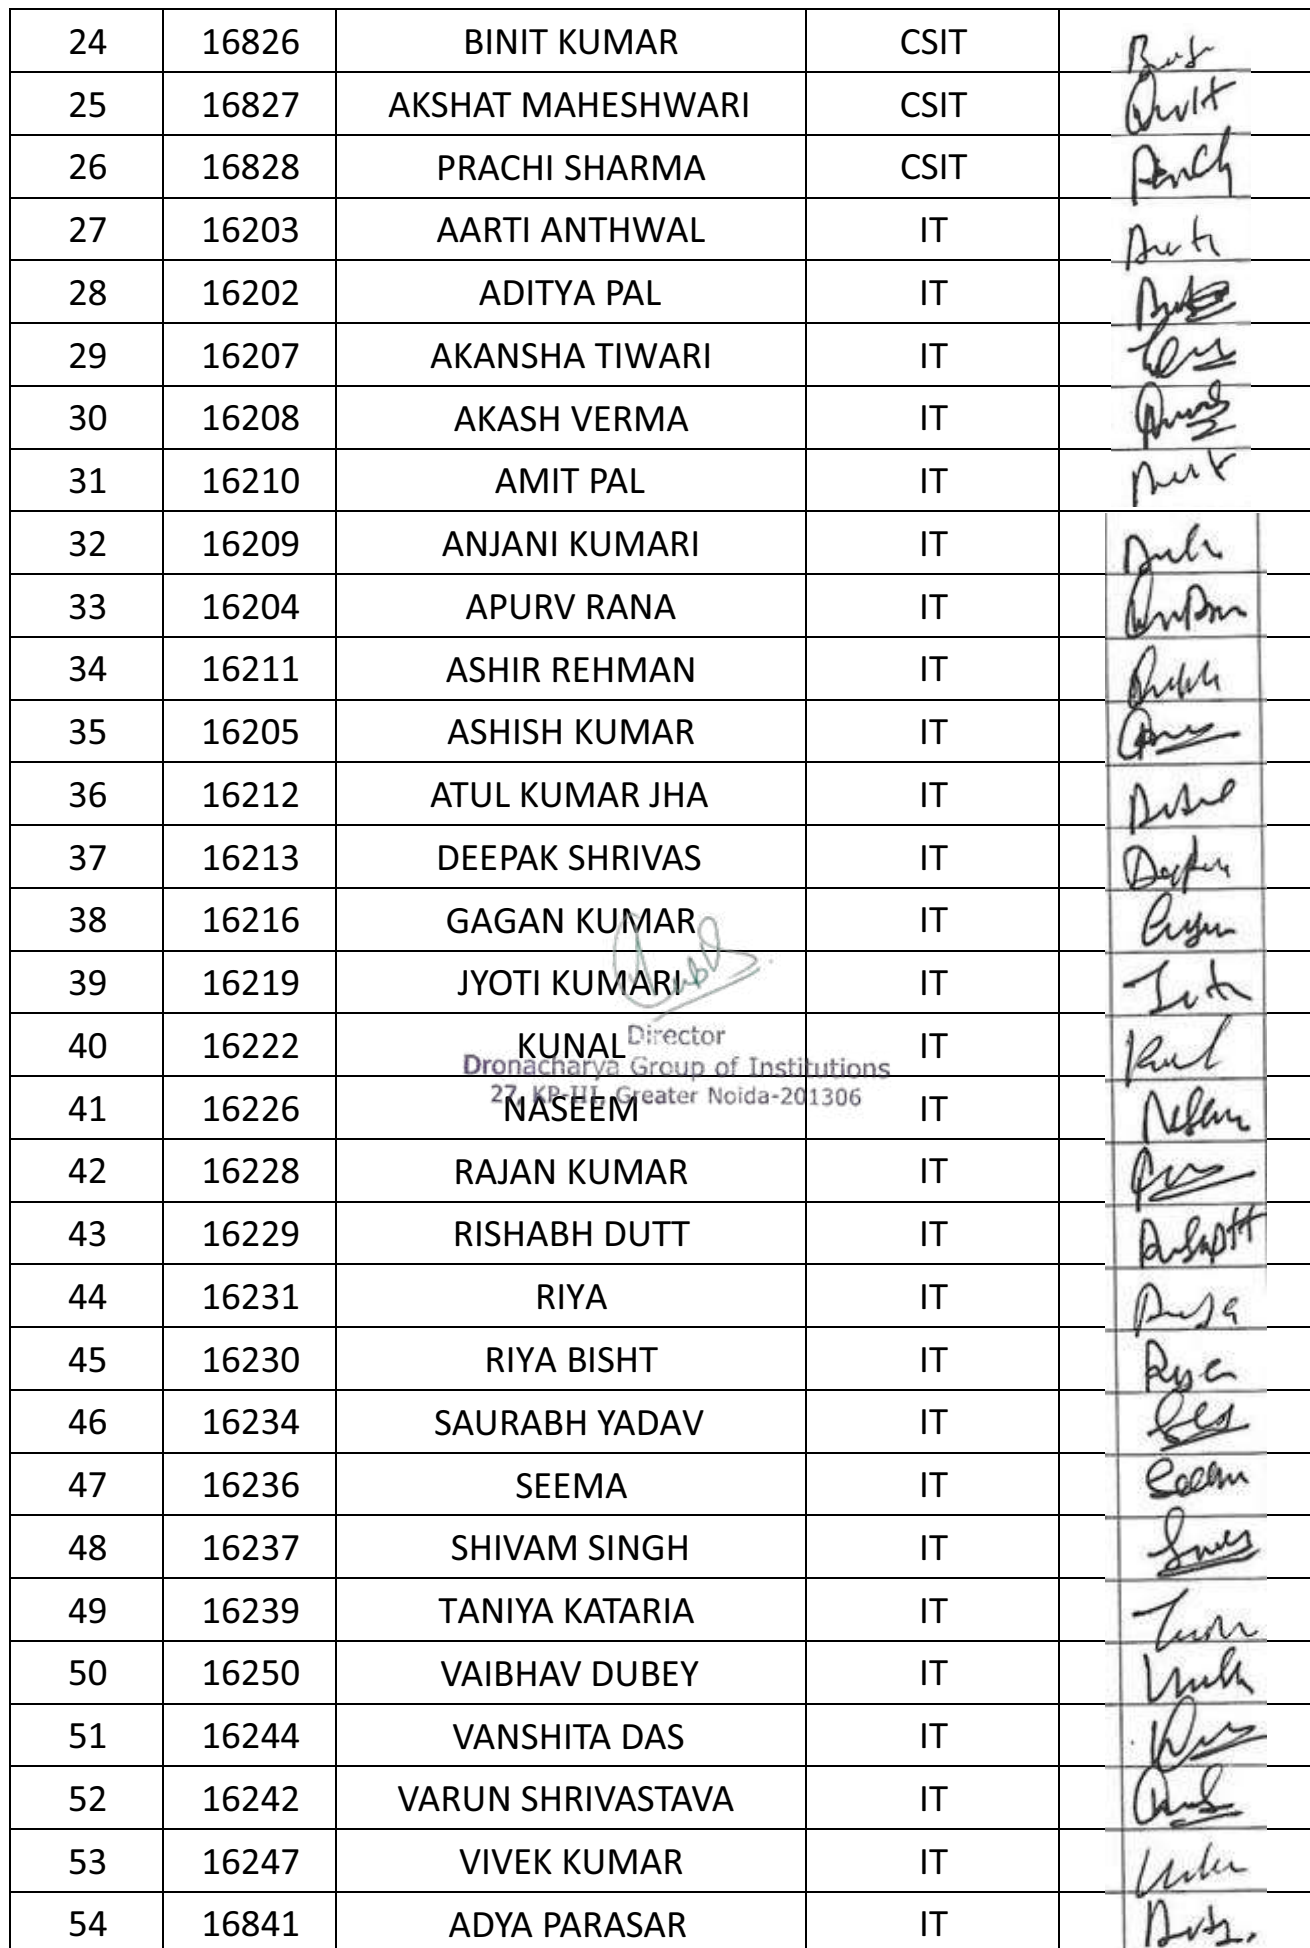 24 16826 BINIT KUMAR CSIT
25 16827 AKSHAT MAHESHWARI CSIT
26 16828 PRACHI SHARMA CSIT
27 16203 AARTI ANTHWAL IT
28 16202 ADITYA PAL IT
29 16207 AKANSHA TIWARI IT
30 16208 AKASH VERMA IT
31 16210 AMIT PAL IT
32 16209 ANJANI KUMARI IT
33 16204 APURV RANA IT
34 16211 ASHIR REHMAN IT
35 16205 ASHISH KUMAR IT
36 16212 ATUL KUMAR JHA IT
37 16213 DEEPAK SHRIVAS IT
38 16216 GAGAN KUMAR IT
39 16219 JYOTI KUMARI IT
40 16222 KUNAL IT
Director
Dronacharya Group of Institutions
27, KP-III, Greater Noida-201306
41 16226 NASEEM IT
42 16228 RAJAN KUMAR IT
43 16229 RISHABH DUTT IT
44 16231 RIYA IT
45 16230 RIYA BISHT IT
46 16234 SAURABH YADAV IT
47 16236 SEEMA IT
48 16237 SHIVAM SINGH IT
49 16239 TANIYA KATARIA IT
50 16250 VAIBHAV DUBEY IT
51 16244 VANSHITA DAS IT
52 16242 VARUN SHRIVASTAVA IT
53 16247 VIVEK KUMAR IT
54 16841 ADYA PARASAR IT